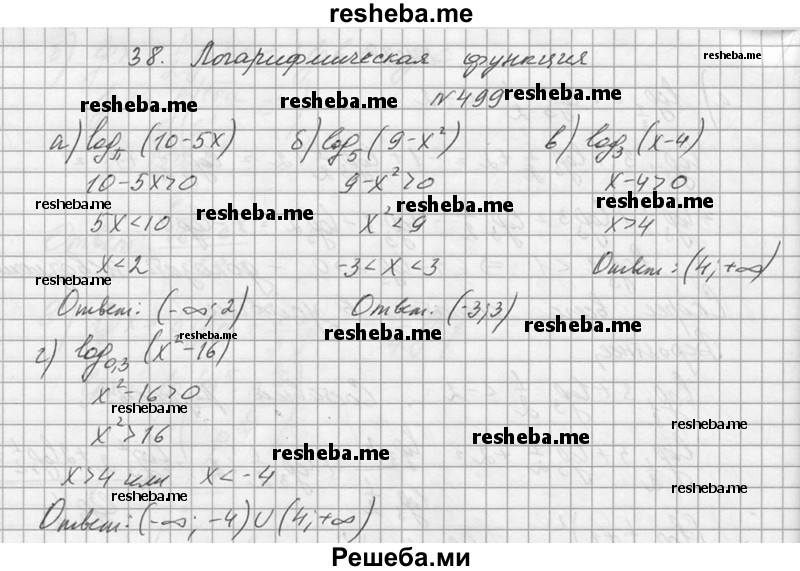 resheba.me
38. Логарифмическая функция
resheba.me
№499
resheba.me resheba.me resheba.me
а) log_π (10-5x) б) log_5 (9-x²) в) log_3 (x-4)
10-5x>0 9-x²>0 x-4>0
resheba.me resheba.me resheba.me resheba.me
5x<10 x²<9 x>4
x<2 -3<x<3 Ответ: (4; +∞)
resheba.me
Ответ: (-∞; 2) Ответ: (-3; 3)
resheba.me resheba.me resheba.me
г) log_0,3 (x²-16)
x²-16>0
resheba.me
resheba.me
x²>16
resheba.me
resheba.me
x>4 или x<-4
resheba.me
resheba.me
Ответ: (-∞; -4) ∪ (4; +∞)
Решеба.ми